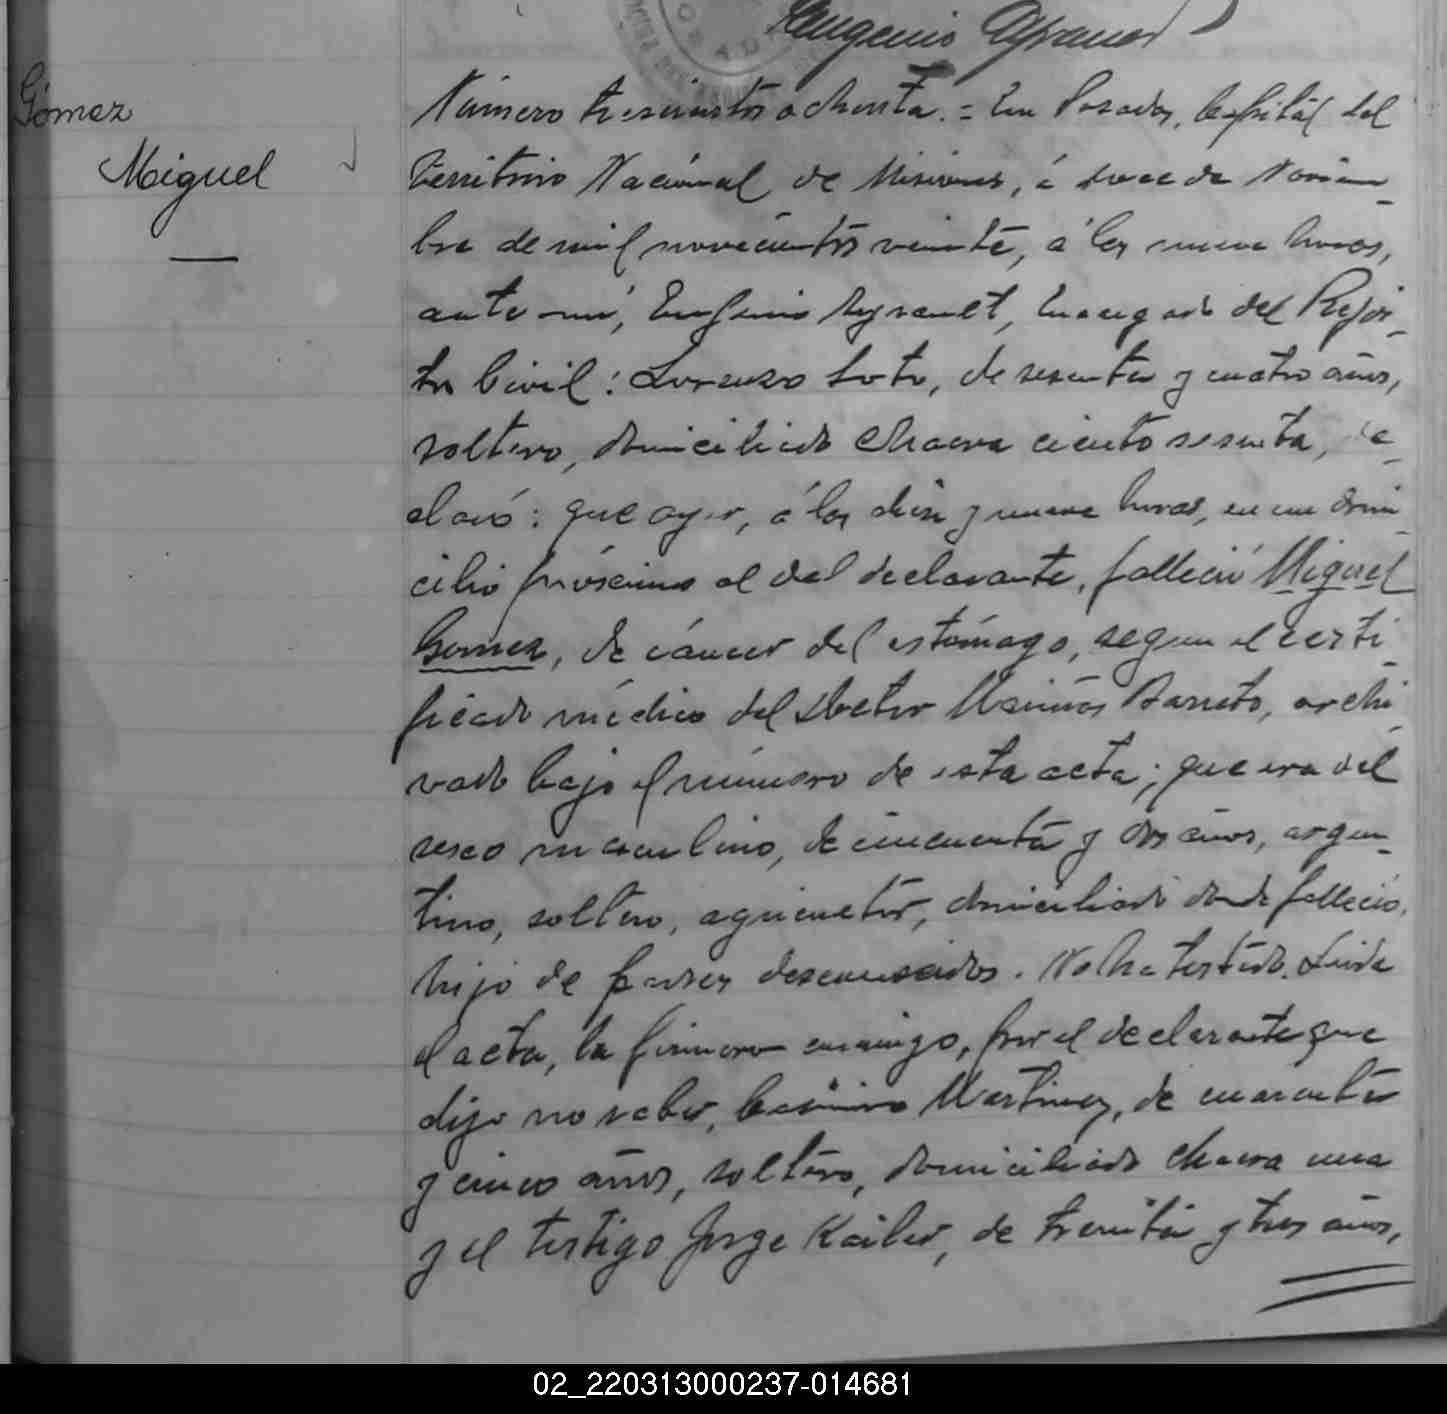 Eugenio Ayrault
Gómez
Miguel
Número trescientos ochenta. = En Posadas, Capital del
Territorio Nacional de Misiones, á doce de Noviem-
bre de mil novecientos veinte, á las nueve horas,
ante mí, Eugenio Ayrault, Encargado del Rejis-
tro Civil: Lorenzo Soto, de sesenta y cuatro años,
soltero, domiciliado Chacra ciento sesenta, de-
claró: que ayer, á las diez y nueve horas, en un domi-
cilio próximo al del declarante, falleció Miguel
Gomez, de cáncer del estómago, segun el certi-
ficado médico del Doctor Barreto, archi-
vado bajo el número de esta acta; que era del
sexo masculino, de cincuenta y dos años, argen-
tino, soltero, agricultor, domiciliado donde falleció,
hijo de padres desconocidos. No ha testado. Leida
el acta, la firmaron conmigo, por el declarante que
dijo no saber, Casimiro Martinez, de cuarenta
y cinco años, soltero, domiciliado chacra una
y el testigo Jorge Kailer, de treinta y tres años,
02_220313000237-014681